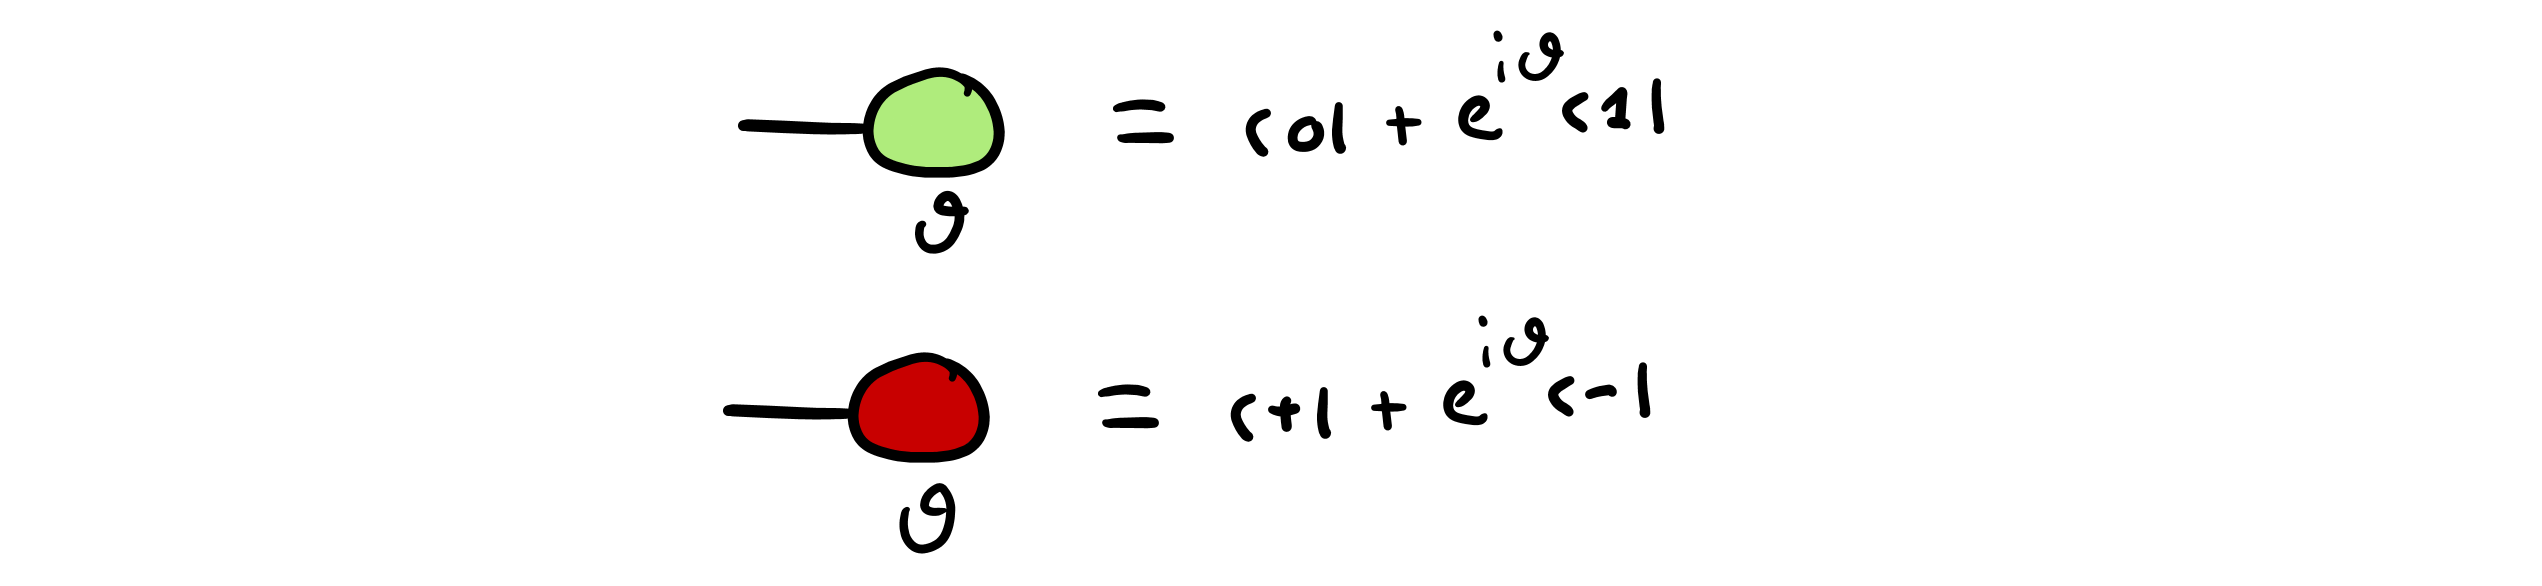 = ⟨0| + e^{iϑ}⟨1|
ϑ
= ⟨+| + e^{iϑ}⟨-|
ϑ